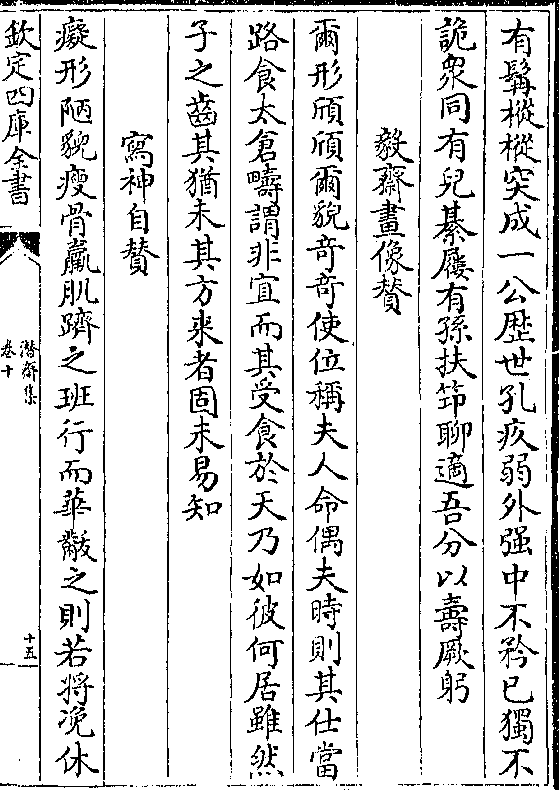 有鬚樅樅突成一公歴世孔疚弱外强中不矜已獨不
詭衆同有兒綦屨有孫扶笻聊適吾分以壽厥躬
毅齋畫像贊
爾形頎頎爾貌竒竒使位稱夫人命偶夫時則其仕當
路食太倉疇謂非宜而其受食於天乃如彼何居雖然
子之齒其猶未其方来者固未易知
寫神自贊
癡形陋貌瘦骨羸肌躋之班行而華黻之則若將凂休
欽定四庫全書
潜齋集
卷十
十五